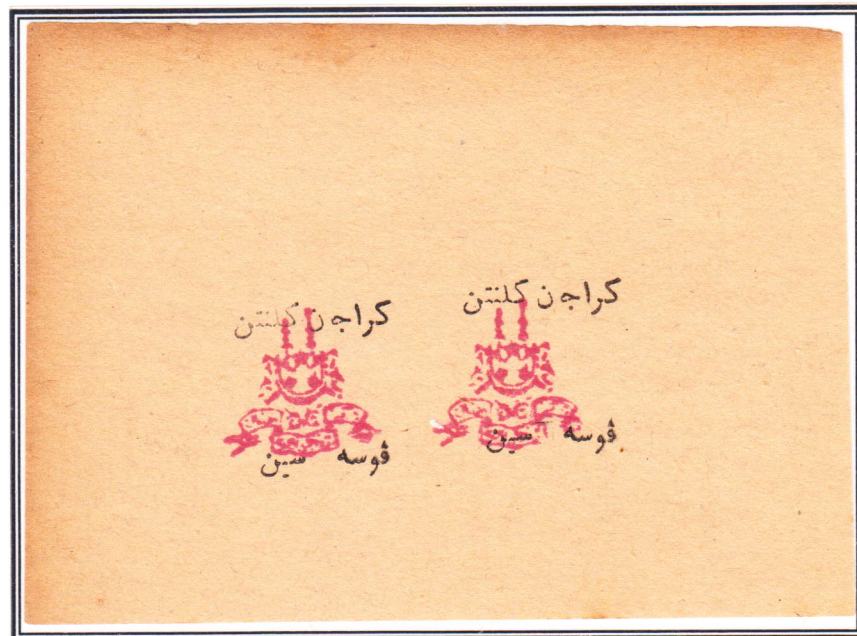 كراجن كلنتن
ڤوسه سين
كراجن كلنتن
ڤوسه سين